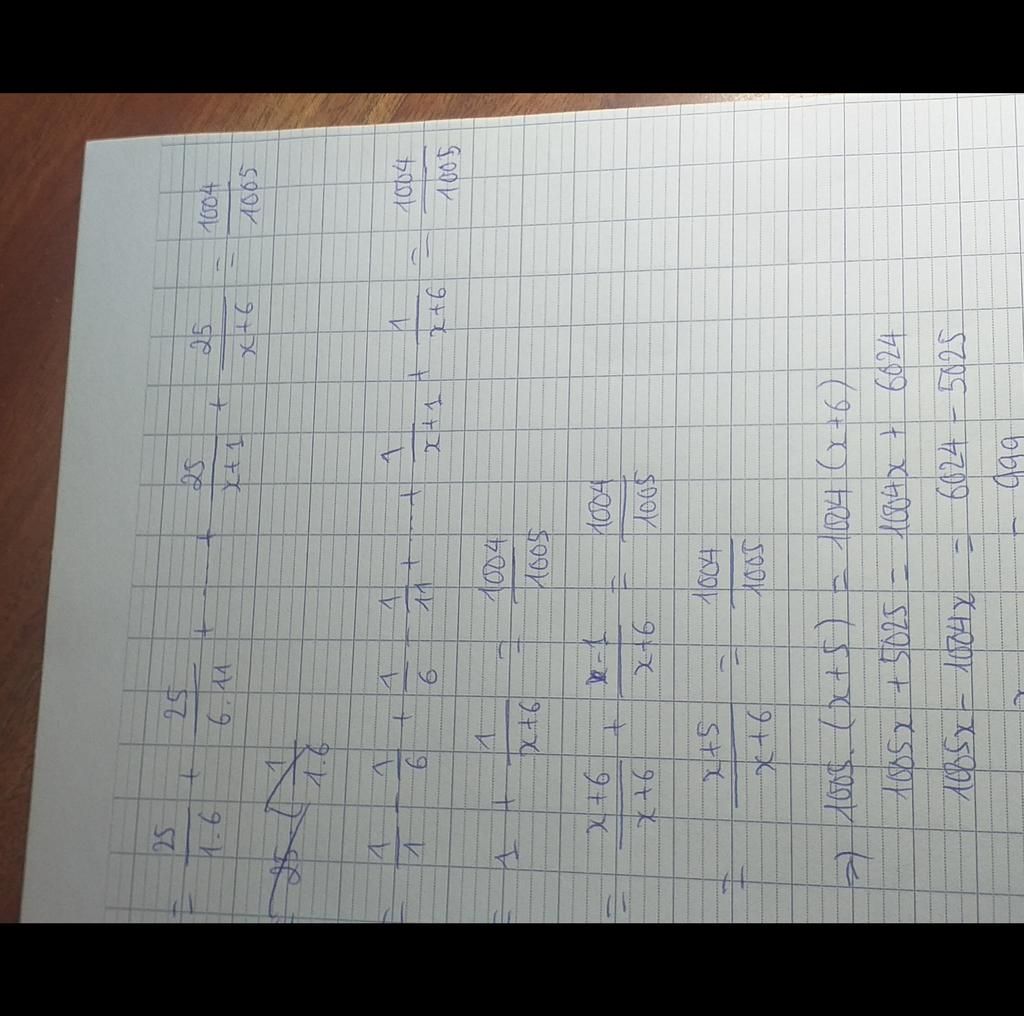 = 25/1.6 + 25/6.11 + ...... + 25/x+1 + 25/x+6 = 1004/1005
= 1/1 - 1/6 + 1/6 - 1/11 + ..... + 1/x+1 + 1/x+6 = 1004/1005
= 1 + 1/x+6 = 1004/1005
= x+6/x+6 + -1/x+6 = 1004/1005
= x+5/x+6 = 1004/1005
=> 1005.(x+5) = 1004(x+6)
1005x + 5025 = 1004x + 6024
1005x - 1004x = 6024 - 5025
= 999